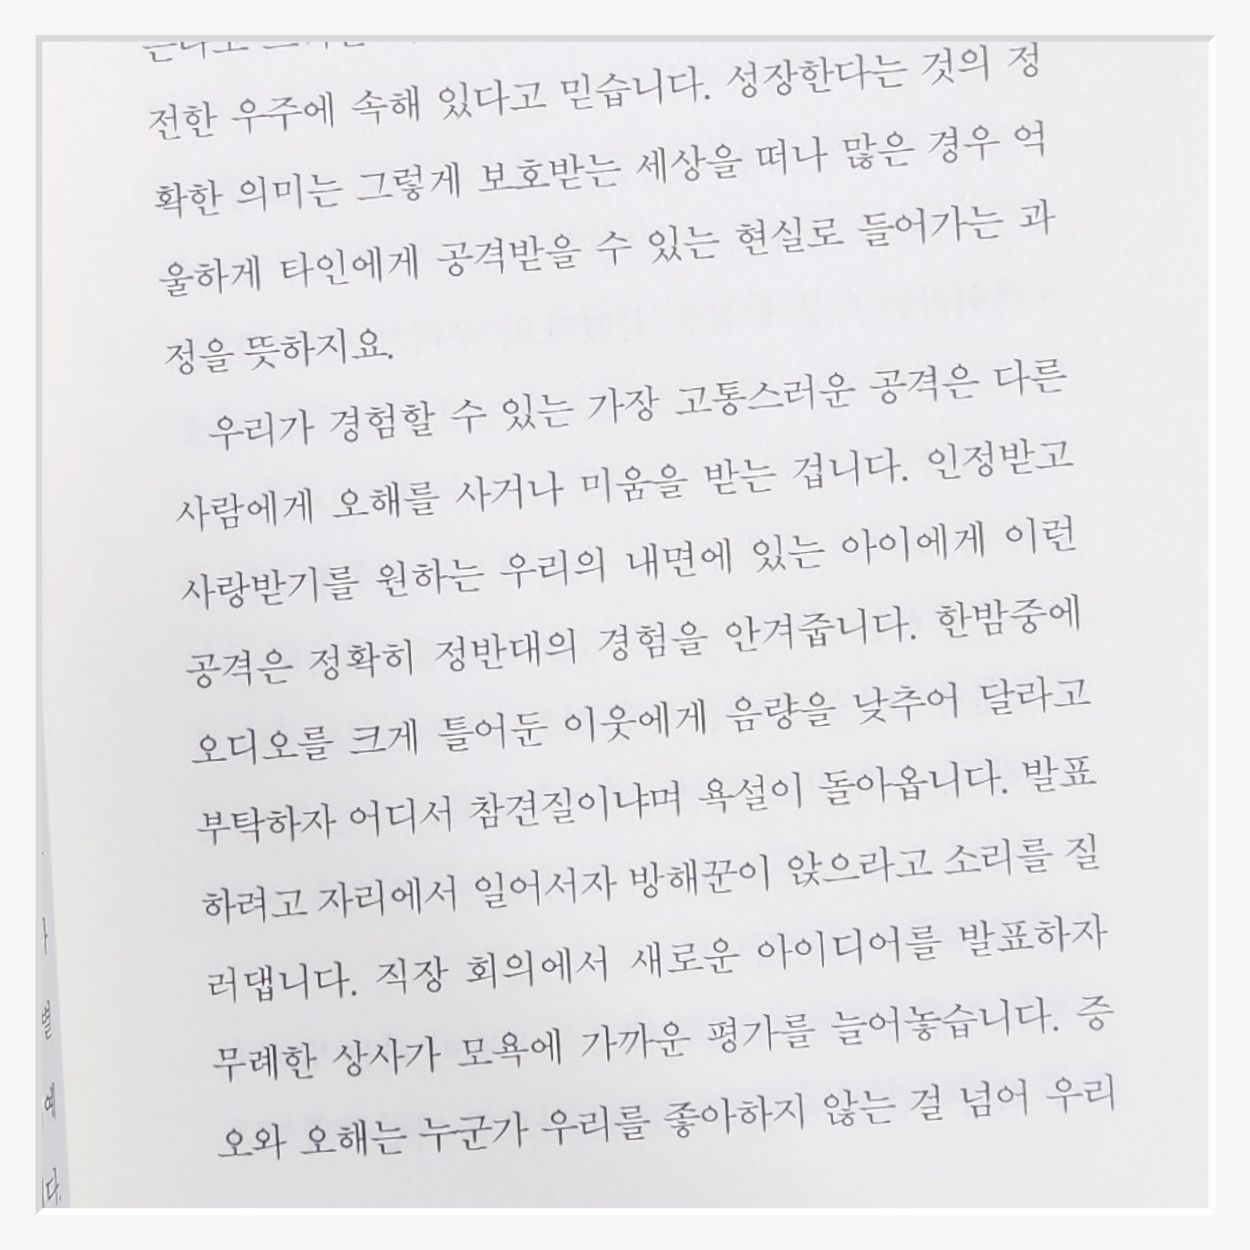 전한 우주에 속해 있다고 믿습니다. 성장한다는 것의 정
확한 의미는 그렇게 보호받는 세상을 떠나 많은 경우 억
울하게 타인에게 공격받을 수 있는 현실로 들어가는 과
정을 뜻하지요.
우리가 경험할 수 있는 가장 고통스러운 공격은 다른
사람에게 오해를 사거나 미움을 받는 겁니다. 인정받고
사랑받기를 원하는 우리의 내면에 있는 아이에게 이런
공격은 정확히 정반대의 경험을 안겨줍니다. 한밤중에
오디오를 크게 틀어둔 이웃에게 음량을 낮추어 달라고
부탁하자 어디서 참견질이냐며 욕설이 돌아옵니다. 발표
하려고 자리에서 일어서자 방해꾼이 앉으라고 소리를 질
러댑니다. 직장 회의에서 새로운 아이디어를 발표하자
무례한 상사가 모욕에 가까운 평가를 늘어놓습니다. 증
오와 오해는 누군가 우리를 좋아하지 않는 걸 넘어 우리
별
예
다.